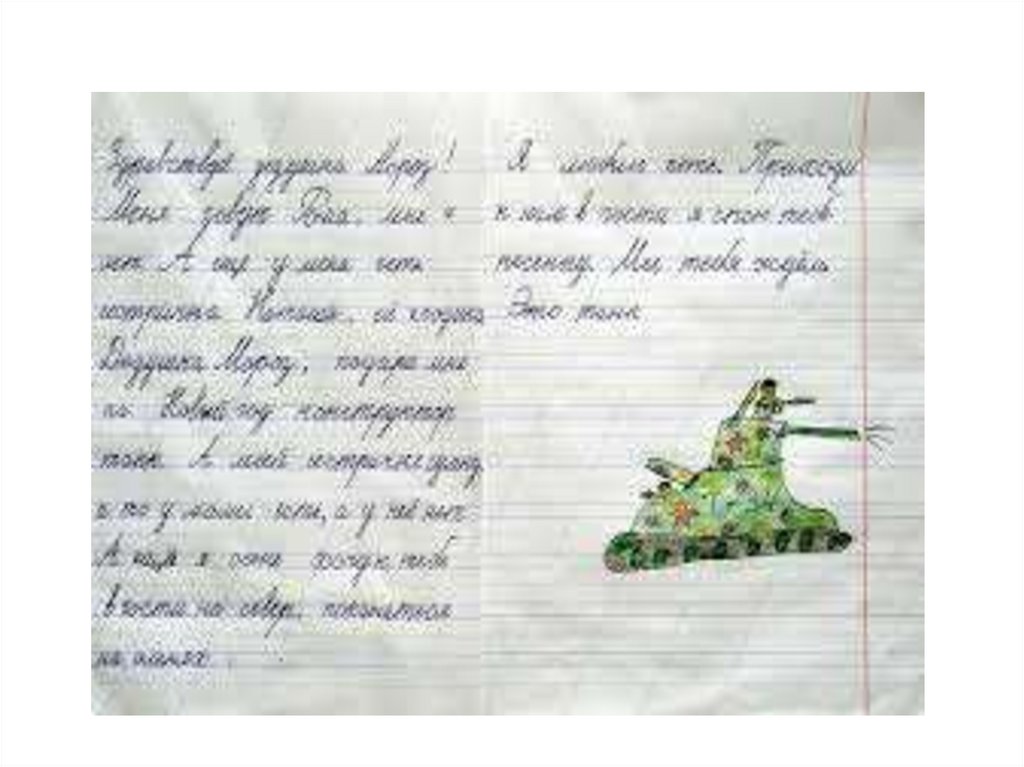 Здравствуй дедушка Мороз!
Меня зовут мне
лет. А ещё у меня есть
сестричка ей годика
Дедушка Мороз, подари мне
на Новый год конструктор
танк. А моей сестричке
а то у мамы есть, а у неё нет
А ещё я хочу к тебе
в гости на север, покататься
на
Я люблю тебя. Приходи
к нам в гости я спою тебе
песенку. Мы тебя ждём.
Это танк